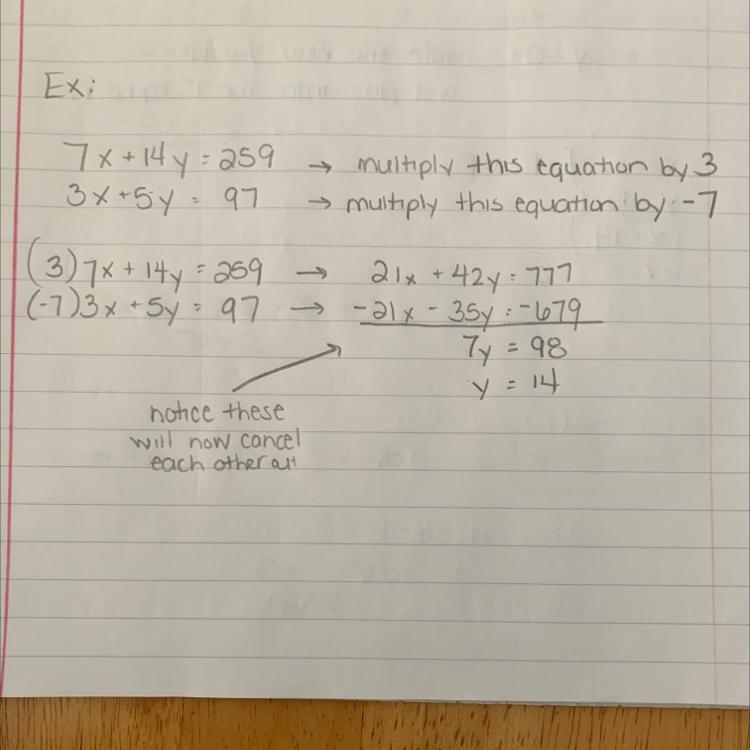 Ex:
7x + 14y = 259 → multiply this equation by 3
3x + 5y = 97 → multiply this equation by -7
(3) 7x + 14y = 259 → 21x + 42y = 777
(-7) 3x + 5y = 97 → -21x - 35y = -679
7y = 98
y = 14
notice these
will now cancel
each other out